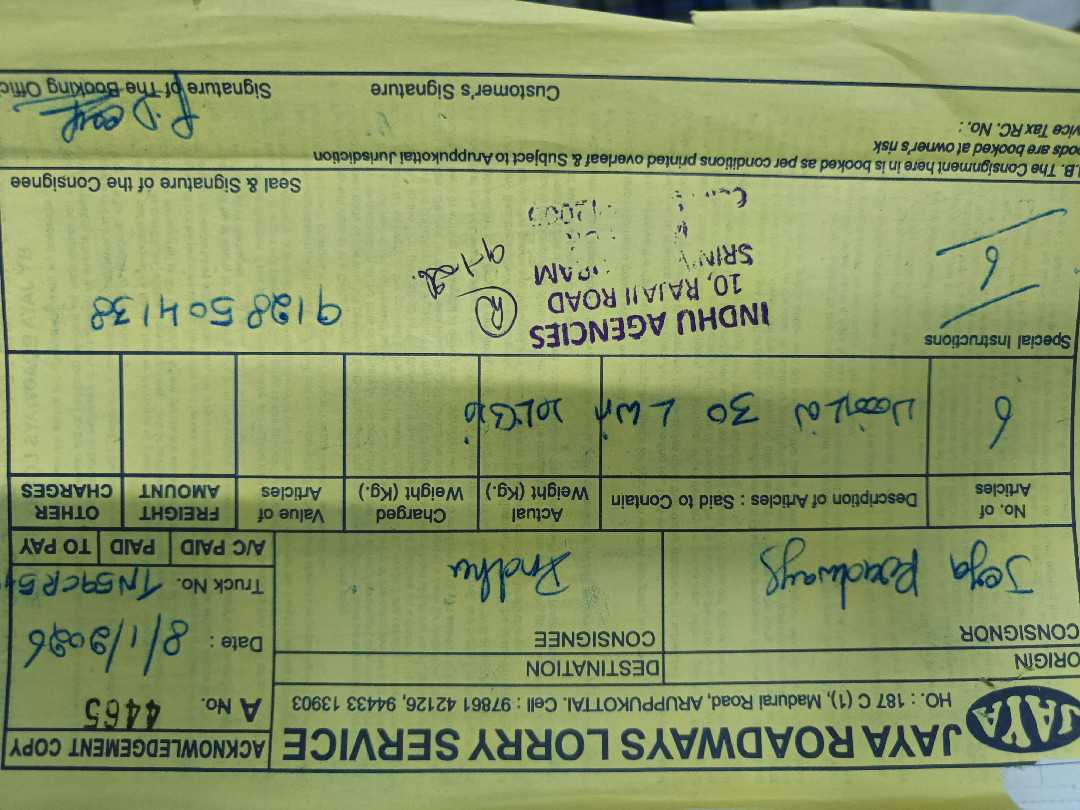 JAYA
JAYA ROADWAYS LORRY SERVICE
HO. : 187 C (1), Madurai Road, ARUPPUKOTTAI. Cell : 97861 42126, 94433 13903
ACKNOWLEDGEMENT COPY
A No. 4465
Date : 8/1/2026
Truck No. TN59CR5
A/C PAID PAID TO PAY
ORIGIN DESTINATION
CONSIGNOR CONSIGNEE
Jeya Roadways Indhu
No. of Articles
Description of Articles : Said to Contain
Actual Weight (Kg.)
Charged Weight (Kg.)
Value of Articles
FREIGHT AMOUNT
OTHER CHARGES
6 30
Special Instructions
6
INDHU AGENCIES
10, RAJAJI ROAD
9128504138
Seal & Signature of the Consignee
The Consignment here in is booked as per conditions printed overleaf & Subject to Aruppukottai Jurisdiction
are booked at owner's risk
Tax RC. No, :
Customer's Signature
Signature of The Booking